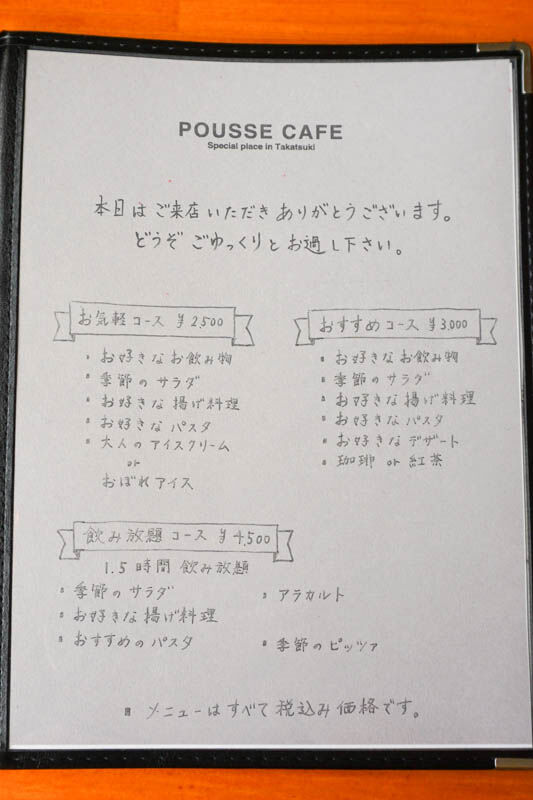 POUSSE CAFE
Special place in Takatsuki
本日はご来店いただきありがとうございます。
どうぞごゆっくりとお過し下さい。
お気軽コース ¥2,500
お好きなお飲み物
季節のサラダ
お好きな揚げ料理
お好きなパスタ
大人のアイスクリーム
or
おぼれアイス
おすすめコース ¥3,000
お好きなお飲み物
季節のサラダ
お好きな揚げ料理
お好きなパスタ
お好きなデザート
珈琲 or 紅茶
飲み放題コース ¥4,500
1.5時間 飲み放題
季節のサラダ
お好きな揚げ料理
おすすめのパスタ
アラカルト
季節のピッツァ
メニューはすべて税込み価格です。